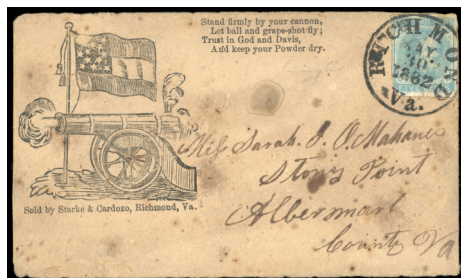 Stand firmly by your cannon,
Let ball and grape-shot fly;
Trust in God and Davis,
And keep your Powder dry.
RICHMOND
Va.
1862
Sold by Starke & Cardozo, Richmond, Va.
Miss Sarah J. O. Mahanes
Stony Point
Albermarl
County Va